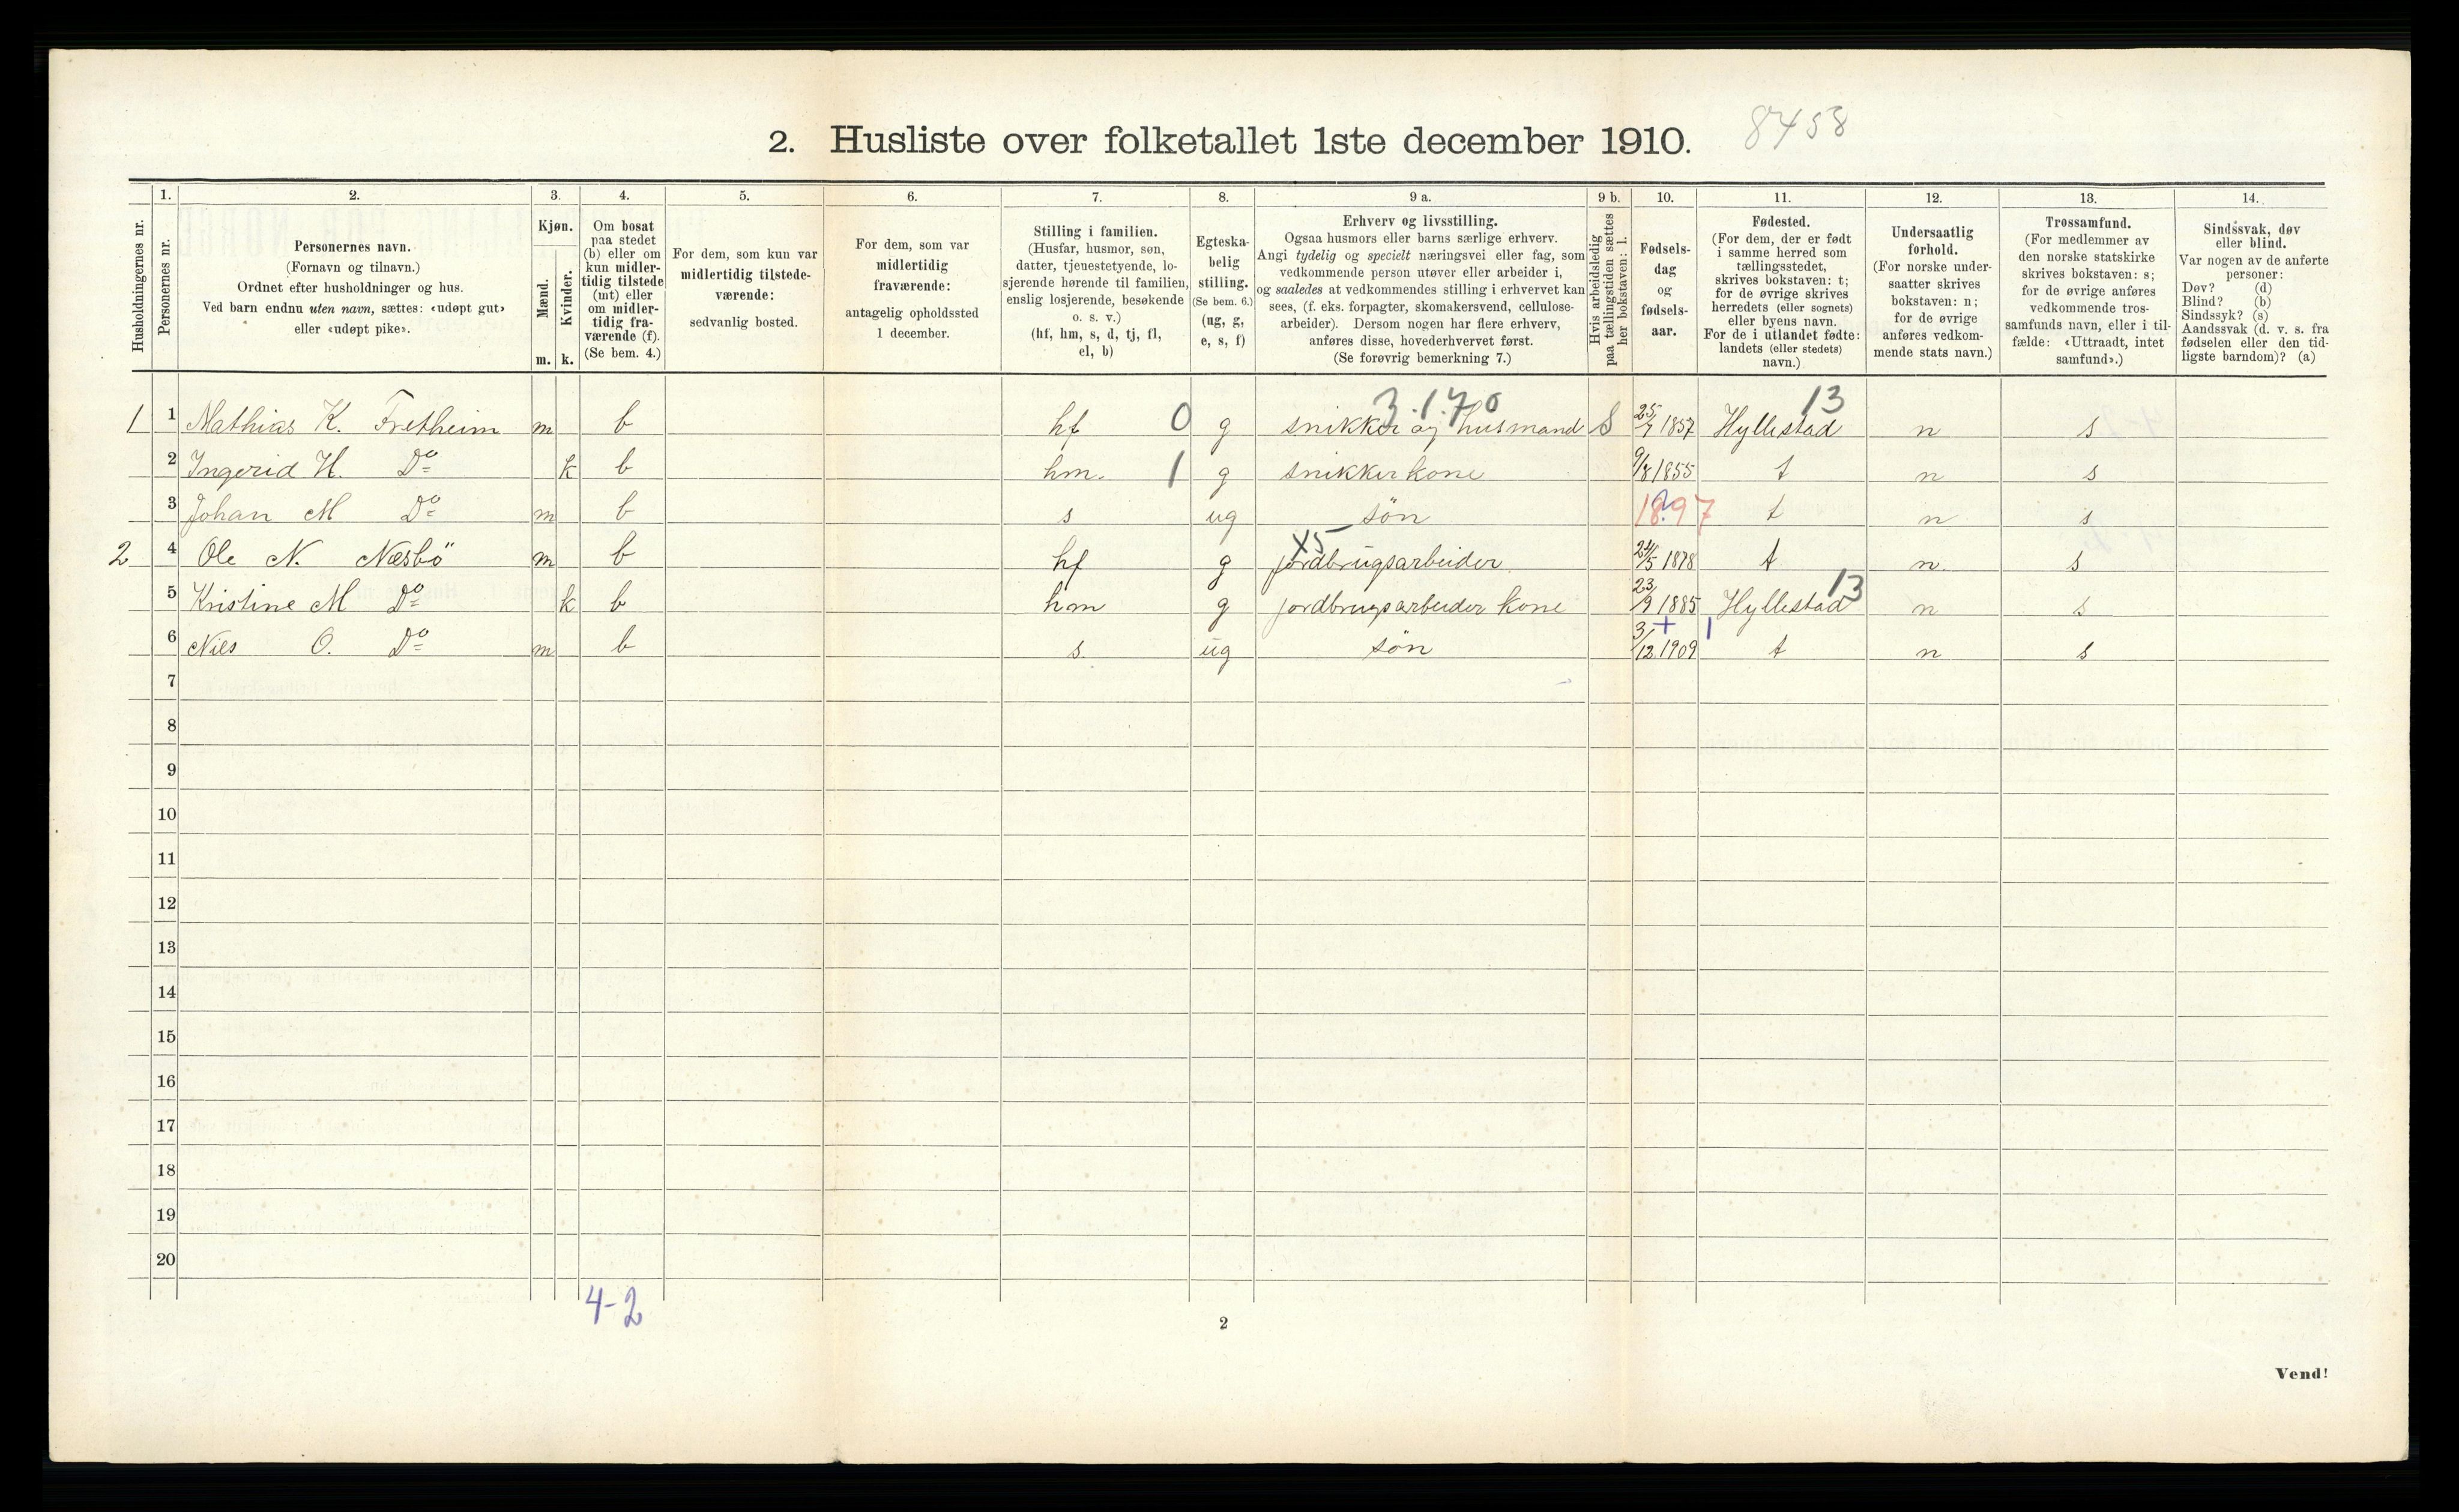 2. Husliste over folketallet 1ste december 1910. 8458
Husholdningernes nr.
1. Personernes nr.
2. Personernes navn.
(Fornavn og tilnavn.)
Ordnet efter husholdninger og hus.
Ved barn endnu uten navn, sættes: «udøpt gut»
eller «udøpt pike».
3. Kjøn.
Mænd. Kvinder.
m. k.
4. Om bosat
paa stedet
(b) eller om
kun midler-
tidig tilstede
(mt) eller
om midler-
tidig fra-
værende (f).
(Se bem. 4.)
5. For dem, som kun var
midlertidig tilstede-
værende:
sedvanlig bosted.
6. For dem, som var
midlertidig
fraværende:
antagelig opholdssted
1 december.
7. Stilling i familien.
(Husfar, husmor, søn,
datter, tjenestetyende, lo-
sjerende hørende til familien,
enslig losjerende, besøkende
o. s. v.)
(hf, hm, s, d, tj, fl,
el, b)
8. Egteska-
belig
stilling.
(Se bem. 6.)
(ug, g,
e, s, f)
9 a. Erhverv og livsstilling.
Ogsaa husmors eller barns særlige erhverv.
Angi tydelig og specielt næringsvei eller fag, som
vedkommende person utøver eller arbeider i,
og saaledes at vedkommendes stilling i erhvervet kan
sees, (f. eks. forpagter, skomakersvend, cellulose-
arbeider). Dersom nogen har flere erhverv,
anføres disse, hovederhvervet først.
(Se forøvrig bemerkning 7.)
9 b. Hvis arbeidsledig
paa tællingstiden sættes
her bokstaven: l.
10. Fødsels-
dag
og
fødsels-
aar.
11. Fødested.
(For dem, der er født
i samme herred som
tællingsstedet,
skrives bokstaven: t;
for de øvrige skrives
herredets (eller sognets)
eller byens navn.
For de i utlandet fødte:
landets (eller stedets)
navn.)
12. Undersaatlig
forhold.
(For norske under-
saatter skrives
bokstaven: n;
for de øvrige
anføres vedkom-
mende stats navn.)
13. Trossamfund.
(For medlemmer av
den norske statskirke
skrives bokstaven: s;
for de øvrige anføres
vedkommende tros-
samfunds navn, eller i til-
fælde: «Uttraadt, intet
samfund».)
14. Sindssvak, døv
eller blind.
Var nogen av de anførte
personer:
Døv? (d)
Blind? (b)
Sindssyk? (s)
Aandssvak (d. v. s. fra
fødselen eller den tid-
ligste barndom)? (a)
3.1.70 13
1 1 Mathias K. Fretheim m b hf 0 g snikker og husmand S 25/7 1857 Hyllestad n s
2 Ingerid H. Do k b hm. 1 g snikker kone 9/8 1855 t n s
3 Johan M Do m b s ug søn 1897 t n s
X5
2 4 Ole N. Næsbö m b hf g jordbrugsarbeider 24/5 1878 t n. s
13
5 Kristine M Do k b hm g jordbrugsarbeider kone 23/9 1885 Hyllestad n s
+ 1
6 Nils O. Do m b s. ug søn 3/12 1909 t n s
7
8
9
10
11
12
13
14
15
16
17
18
19
20
4-2
2
Vend!